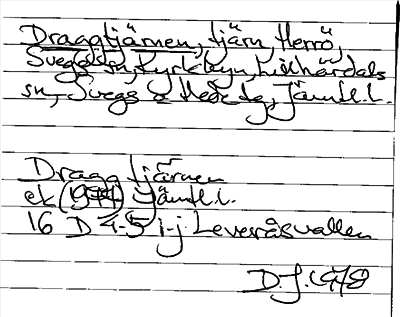 Draggtjärnen, tjärn, Herrö,
Svegs sn, Kyrkbyn, Lillhärdals
sn, Svegs o Hede tg, Jämtl. l.
Draggtjärnen
ek (1974) Jämtl. l.
16 D 4-5 i-j Leveråsvallen
D.J. 1978